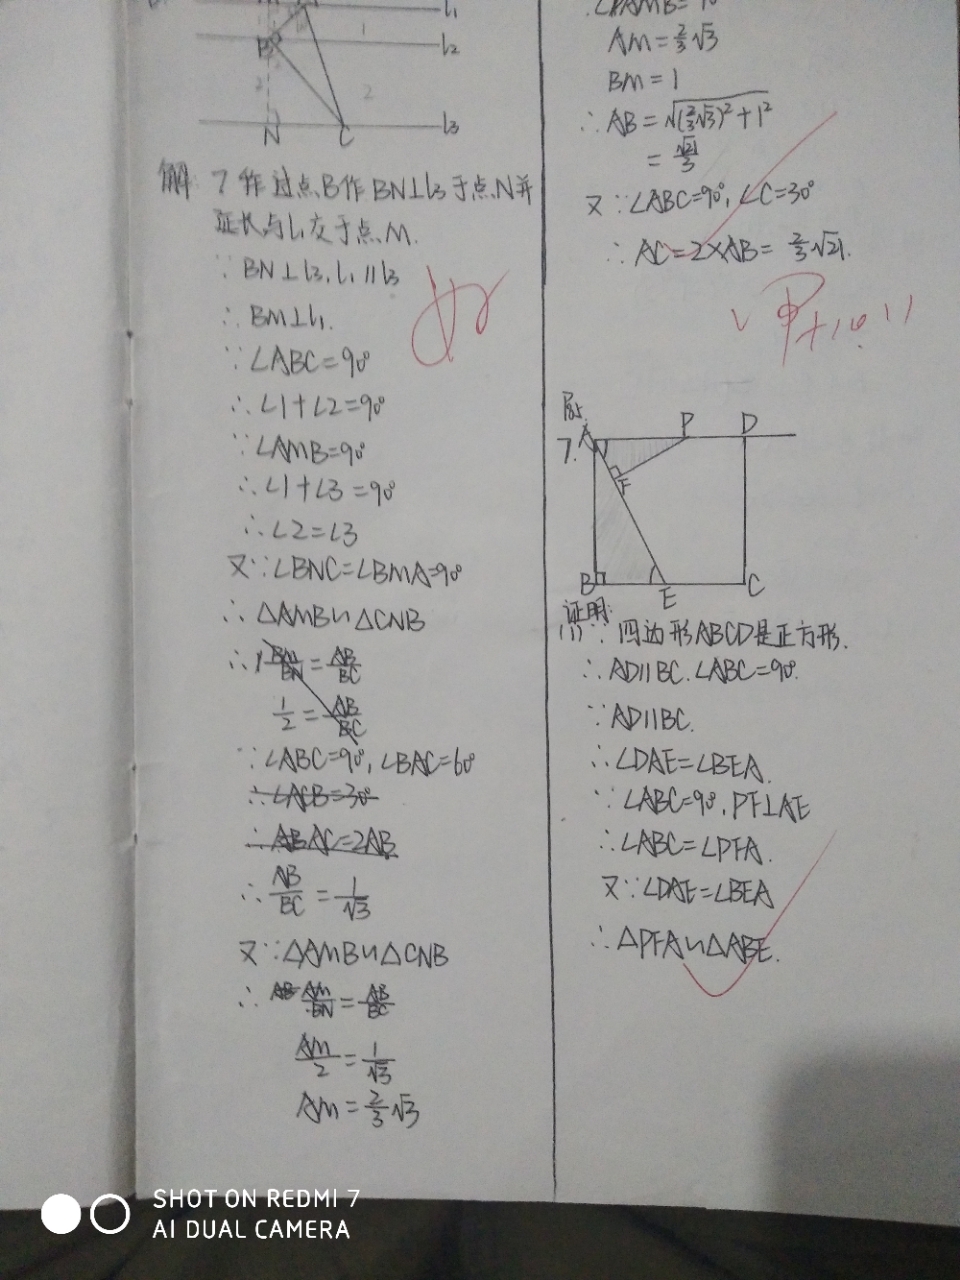 l₁
B
l₂
1
2
2
N
C
l₃
解: 7 作过点B作BN⊥l₃于点N并
延长与l₁交于点M.
∵BN⊥l₃, l₁∥l₃
∴BM⊥l₁.
∵∠ABC=90°
∴∠1+∠2=90°
∵∠AMB=90°
∴∠1+∠3=90°
∴∠2=∠3
又∵∠BNC=∠BMA=90°
∴△AMB∽△CNB
∴BM/BN=AB/BC
1/2=AB/BC
∵∠ABC=90°, ∠BAC=60°
∴∠ACB=30°
∴AB AC=2AB
∴AB/BC=1/√3
又∵△AMB∽△CNB
∴AB AM/BN=AB/BC
AM/2=1/√3
AM=2/3√3
AM=2/3√3
BM=1
∴AB=√(2/3√3)²+1²
=√21/3
又∵∠ABC=90°, ∠C=30°
∴AC=2×AB=2/3√21.
好
7.
A
P
D
F
B
E
C
证明:
(1)∵四边形ABCD是正方形.
∴AD∥BC.∠ABC=90°.
∵AD∥BC.
∴∠DAE=∠BEA.
∵∠ABC=90°.PF⊥AE
∴∠ABC=∠PFA.
又∵∠DAE=∠BEA
∴△PFA∽△ABE.
SHOT ON REDMI 7
AI DUAL CAMERA